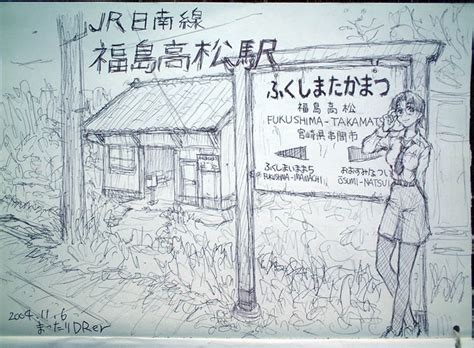 JR日南線
福島高松駅
ふくしまたかまつ
福島高松
FUKUSHIMA-TAKAMATS
宮崎県串間市
ふくしまいままち
FUKUSHIMA-IMAMACHI
おおすみなつい
ŌSUMI-NATSUI
2004.11.6
まったりDRer